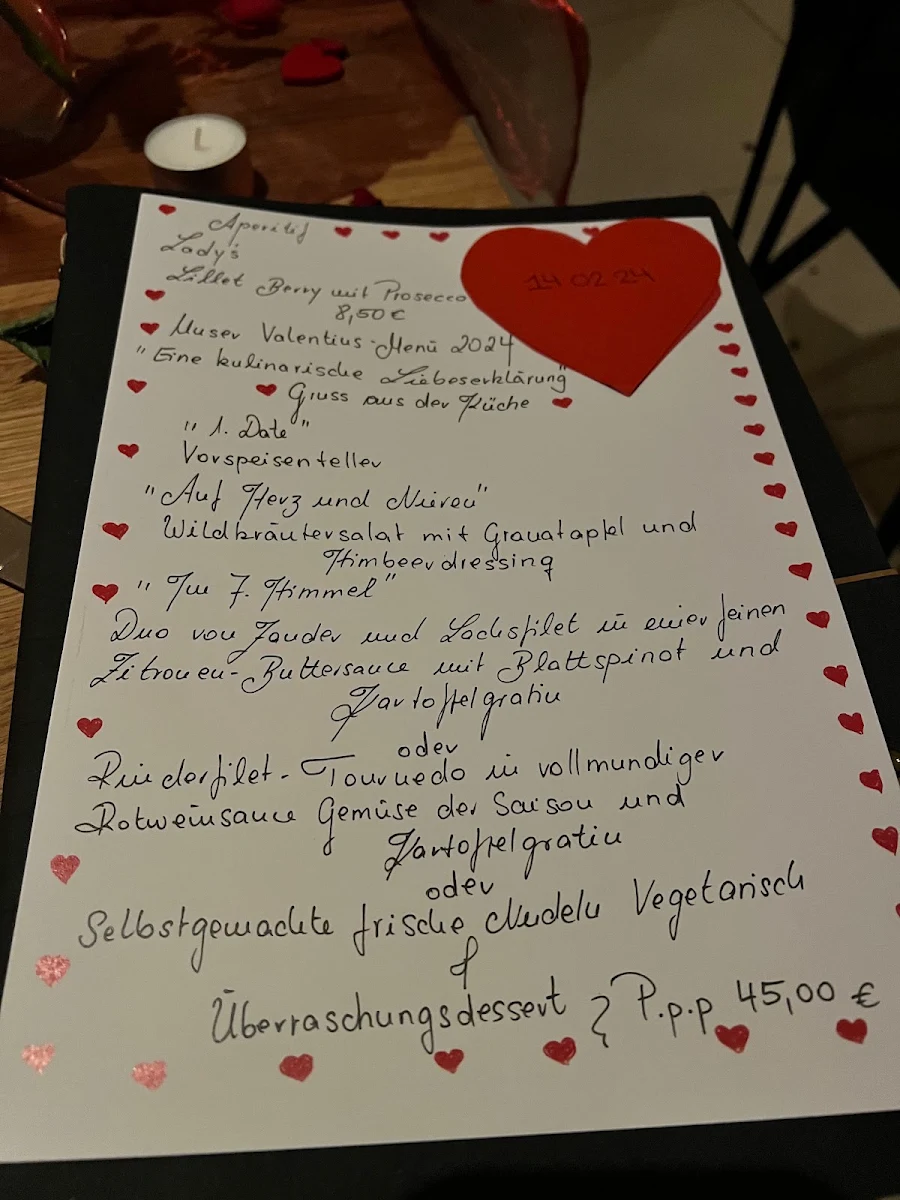 Aperitif
Lady's
Lillet Berry mit Prosecco
8,50 €
14 02 24
Unser Valentins-Menü 2024
"Eine kulinarische Liebeserklärung"
Gruss aus der Küche
"1. Date"
Vorspeisenteller
"Auf Herz und Nieren"
Wildkräutersalat mit Granatapfel und
Himbeerdressing
"Im 7. Himmel"
Duo von Zander und Lachsfilet in einer feinen
Zitronen-Buttersauce mit Blattspinat und
Kartoffelgratin
oder
Rinderfilet-Tournedo in vollmundiger
Rotweinsauce Gemüse der Saison und
Kartoffelgratin
oder
Selbstgemachte frische Nudeln Vegetarisch
&
Überraschungsdessert } P.p.p 45,00 €